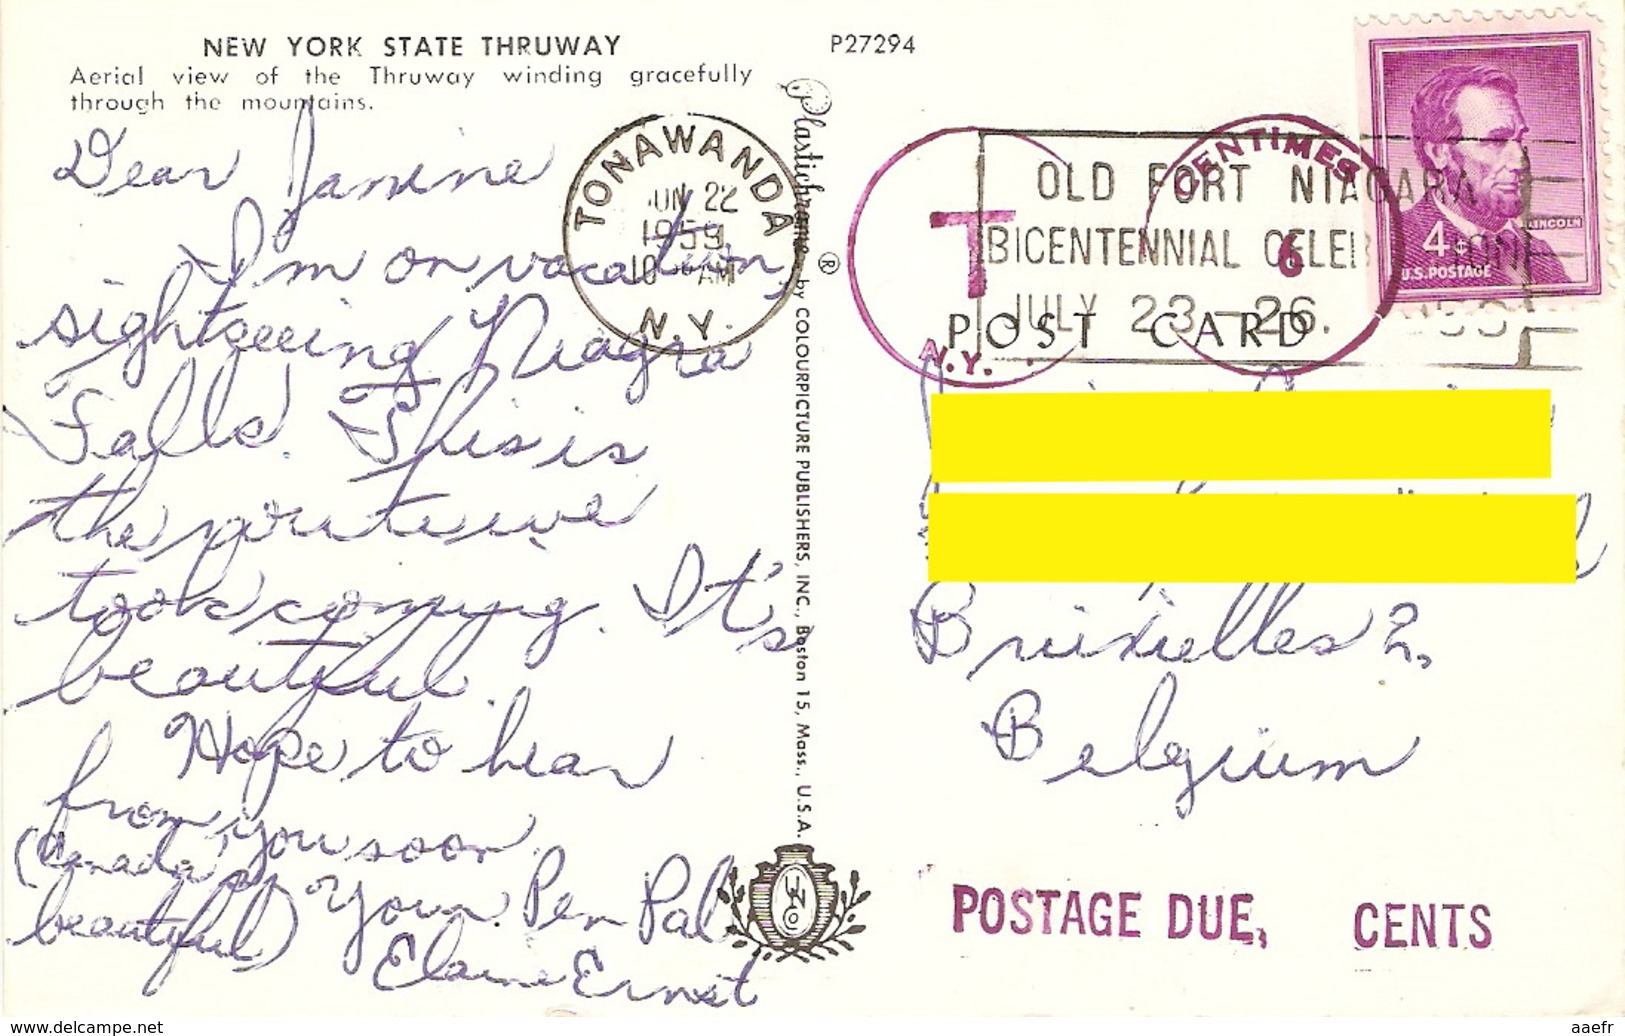 NEW YORK STATE THRUWAY
Aerial view of the Thruway winding gracefully
through the mountains.
P27294
Dear Janine
I'm on vacation,
sightseeing Niagra
Falls. This is
the route we
took coming. It's
beautiful.
Hope to hear
from you soon.
(Canada is
beautiful)
Your Pen Pal
Elaine Ernst
TONAWANDA
JUN 22
1959
10 AM
N.Y.
Plastichrome ® by COLOURPICTURE PUBLISHERS, INC., Boston 15, Mass., U.S.A.
OLD FORT NIAGARA
BICENTENNIAL CELEB TION
JULY 23-26.
CENTIMES
T
6
N.Y.
POST CARD
LINCOLN
4¢
U.S. POSTAGE
Bruxelles 2.
Belgium
POSTAGE DUE, CENTS
www.delcampe.net
aaefr